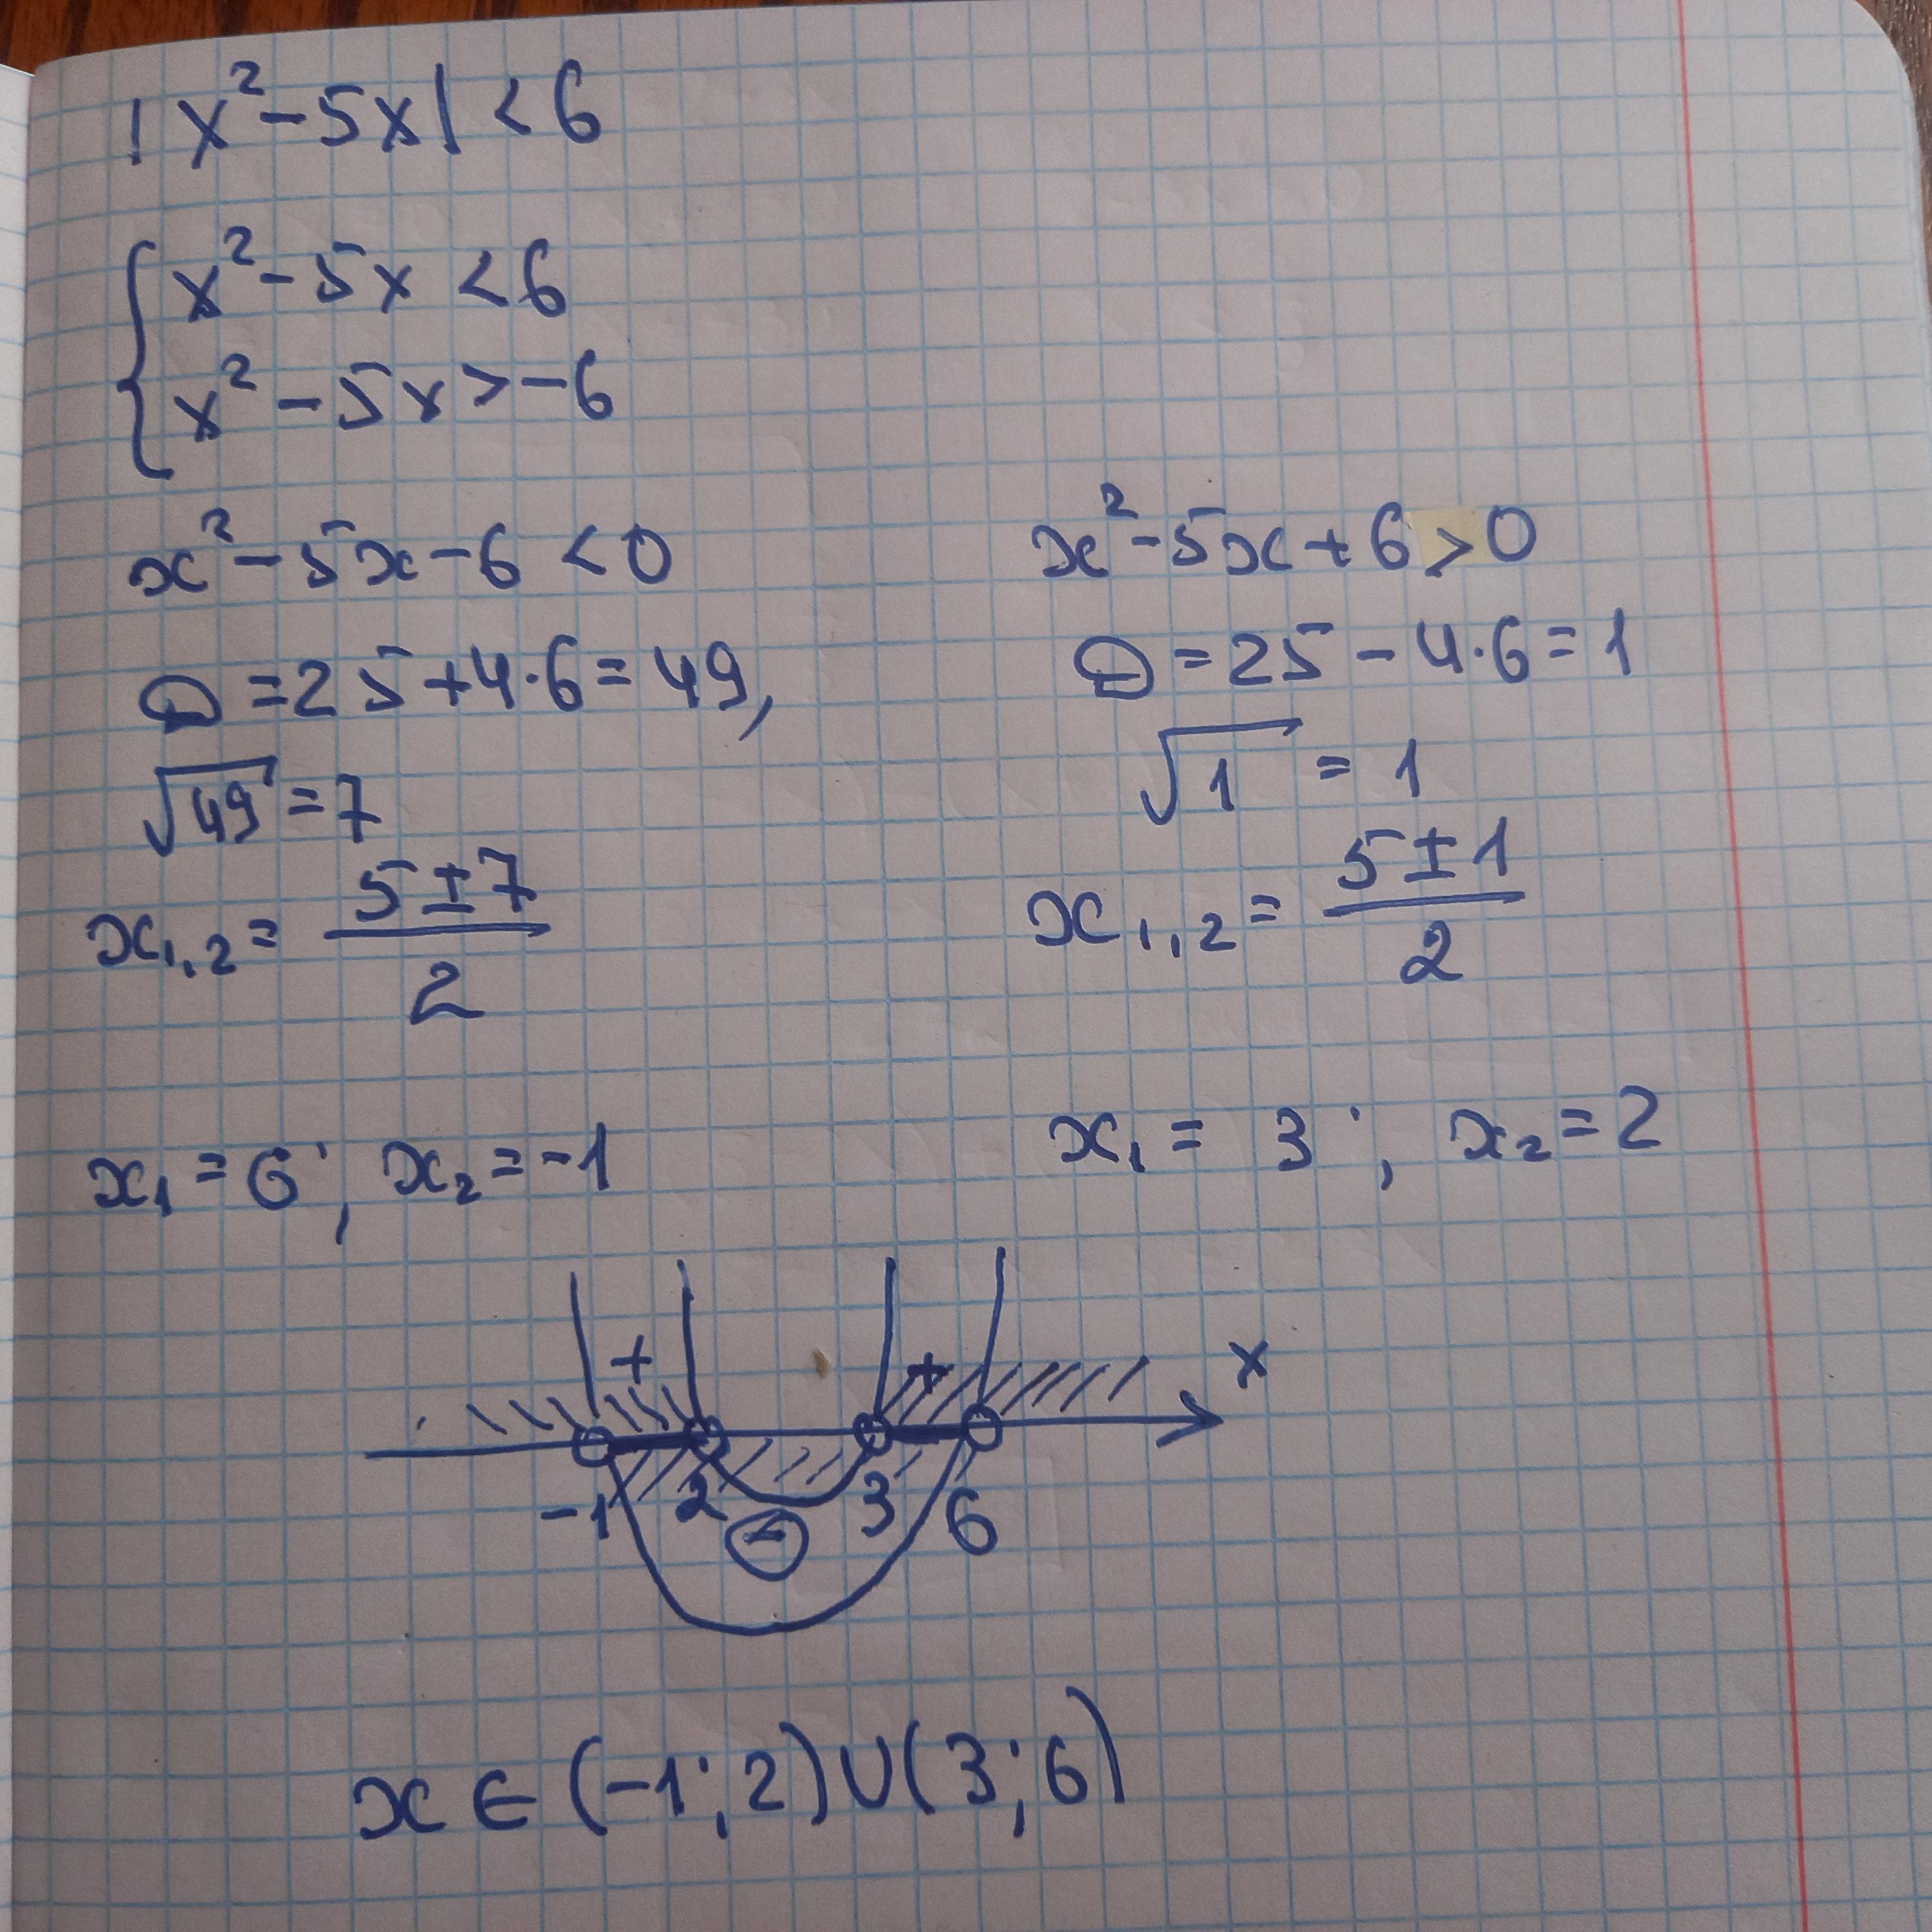 |x²-5x|<6
{x²-5x<6
x²-5x>-6
x²-5x-6<0
D=25+4·6=49,
√49=7
x₁,₂=(5±7)/2
x₁=6; x₂=-1
x²-5x+6>0
D=25-4·6=1
√1=1
x₁,₂=(5±1)/2
x₁=3; x₂=2
+ + x
-1 2 3 6
-
x∈(-1;2)∪(3;6)